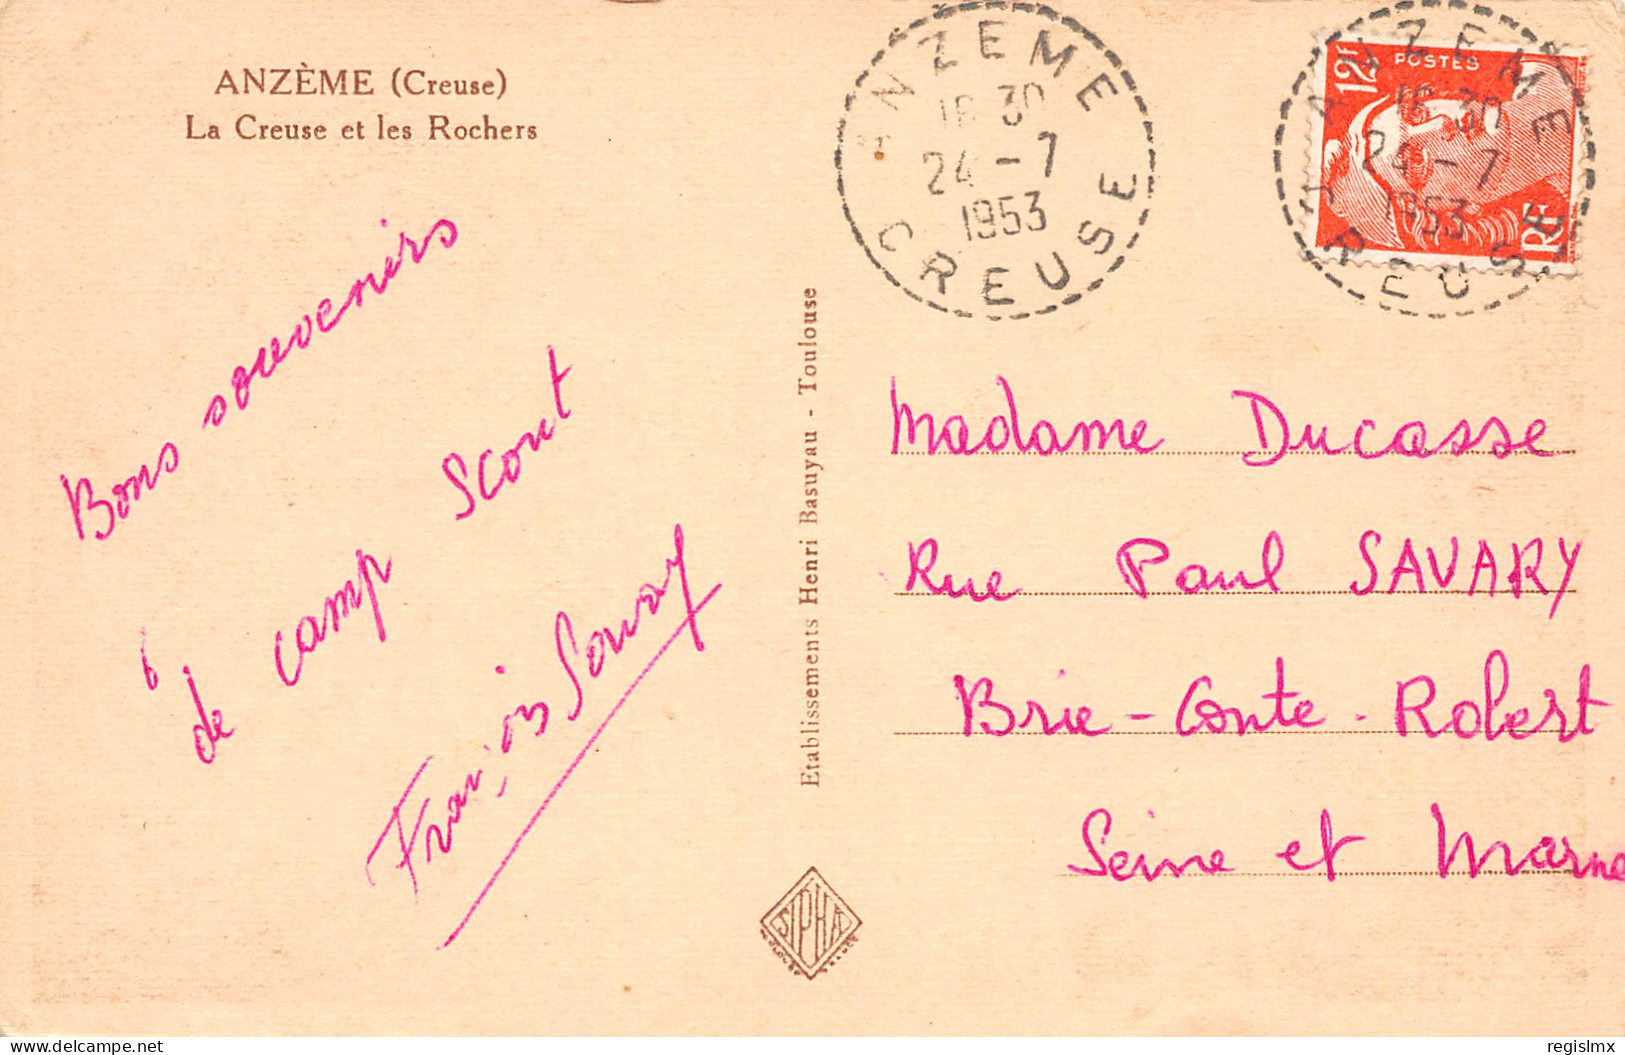 ANZÈME (Creuse)
La Creuse et les Rochers
ANZEME
16 30
24 - 7
1953
CREUSE
12F
POSTES
RF
ANZEME
16 30
24 - 7
1953
CREUSE
Bons souvenirs
de camp scout
François
Etablissements Henri Basuyau - Toulouse
SIPHA
Madame Ducasse
Rue Paul SAVARY
Brie-Conte-Robert
Seine et Marne
delcampe.net
regislmx